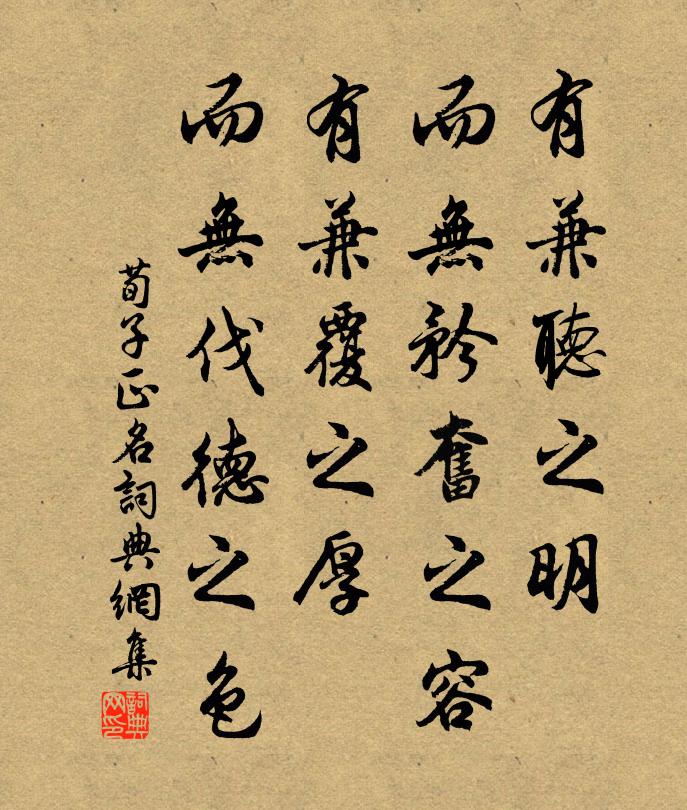 有兼聽之明
而無矜奮之容
有兼覆之厚
而無伐德之色
荀子正名詞典網集
詞典
网印